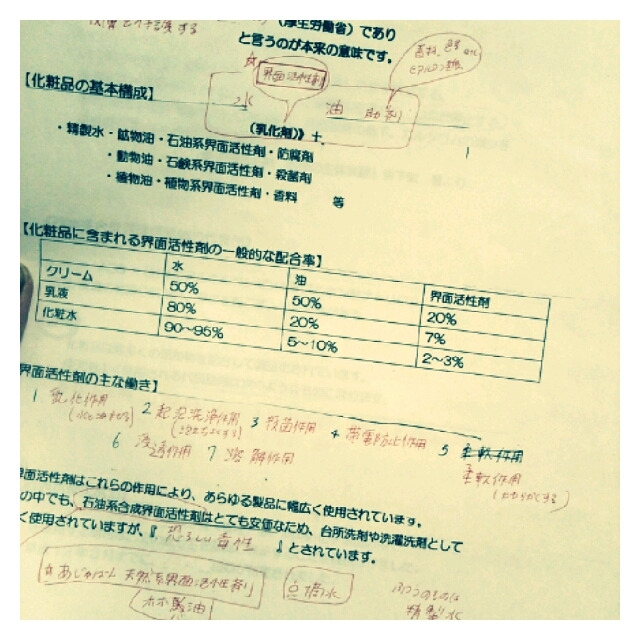 (厚生労働省)であり
と言うのが本来の意味です。
界面活性剤
【化粧品の基本構成】
水 油 助剤
(乳化剤)》+
・精製水・鉱物油・石油系界面活性剤・防腐剤
・動物油・石鹸系界面活性剤・殺菌剤
・植物油・植物系界面活性剤・香料 等
【化粧品に含まれる界面活性剤の一般的な配合率】
水 油 界面活性剤
クリーム 50% 50% 20%
乳液 80% 20% 7%
化粧水 90~95% 5~10% 2~3%
界面活性剤の主な働き】
1 乳化作用 2 起泡洗浄作用 3 殺菌作用 4 帯電防止作用 5 柔軟作用
6 浸透作用 7 溶解作用
柔軟作用
界面活性剤はこれらの作用により、あらゆる製品に幅広く使用されています。
の中でも、石油系合成界面活性剤はとても安価なため、台所洗剤や洗濯洗剤として
く使用されていますが、『 恐ろしい毒性 』とされています。
天然系界面活性剤
ふつうのものは
精製水